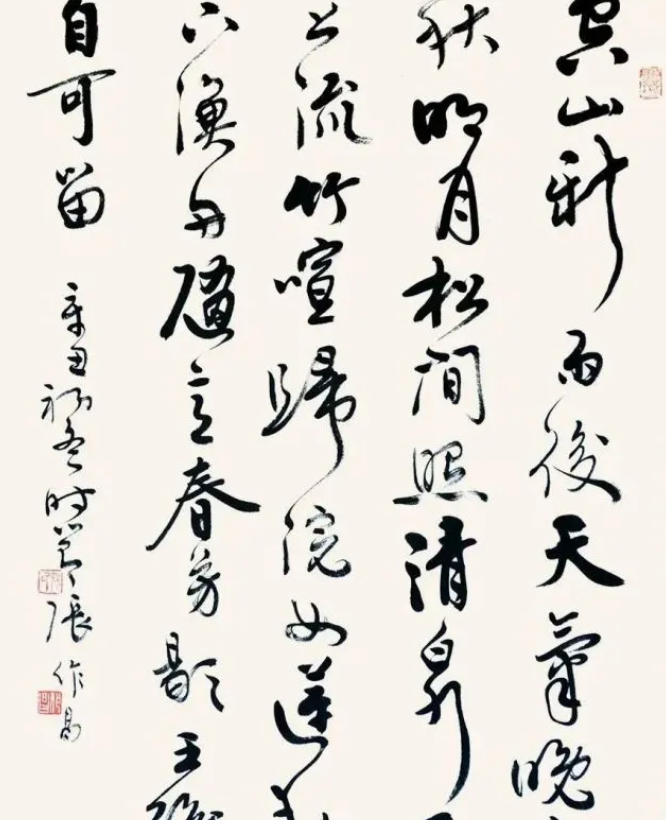 空山新雨後天氣晚
秋明月松間照清泉
上流竹喧歸浣女蓮
下漁舟隨意春芳歇王
自可留
辛丑初冬时节張作